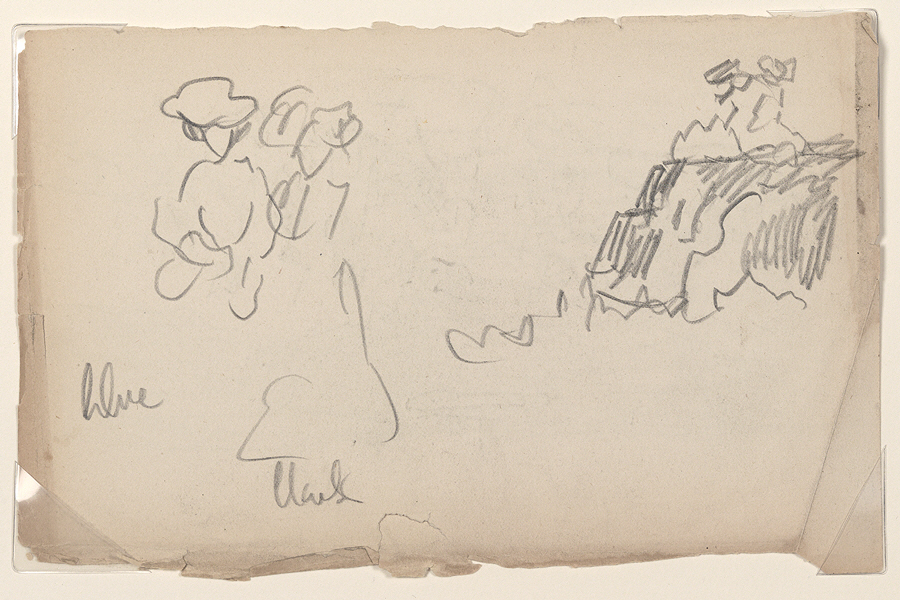 blue
black